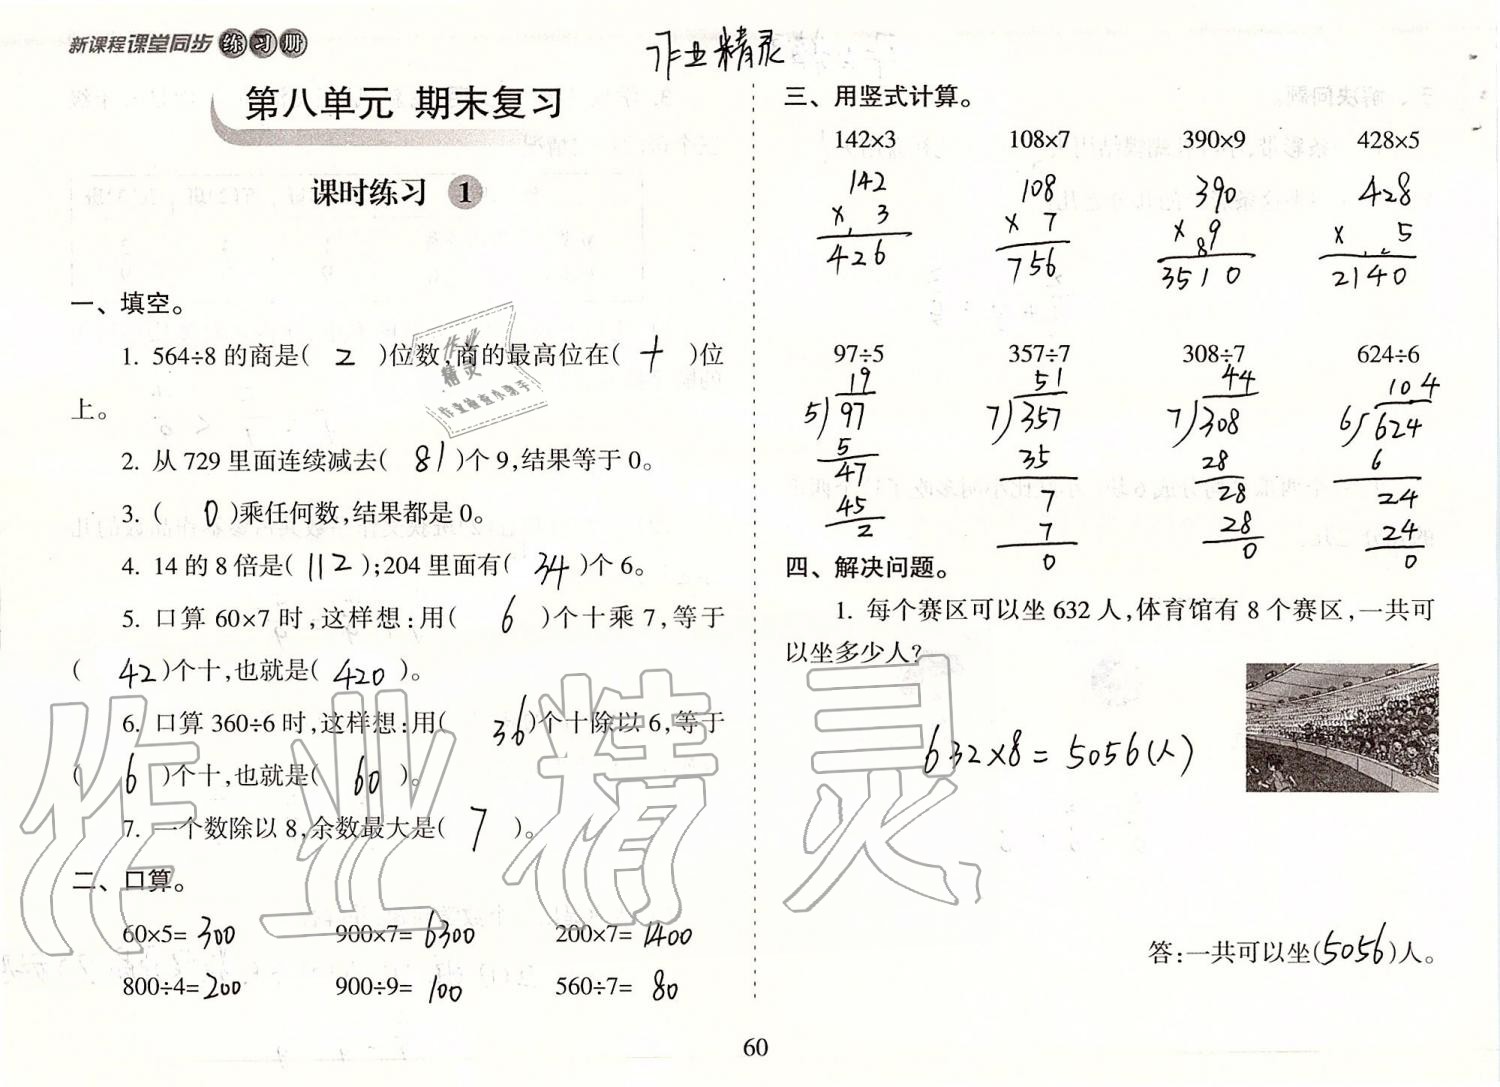 新课程课堂同步练习册
作业精灵
第八单元 期末复习
课时练习 1
一、填空。
1. 564÷8的商是( 2 )位数,商的最高位在( 十 )位
上。
2. 从729里面连续减去( 81 )个9,结果等于0。
3. ( 0 )乘任何数,结果都是0。
4. 14的8倍是( 112 );204里面有( 34 )个6。
5. 口算60×7时,这样想:用( 6 )个十乘7,等于
( 42 )个十,也就是( 420 )。
6. 口算360÷6时,这样想:用( 36 )个十除以6,等于
( 6 )个十,也就是( 60 )。
7. 一个数除以8,余数最大是( 7 )。
二、口算。
60×5= 300 900×7= 6300 200×7= 1400
800÷4= 200 900÷9= 100 560÷7= 80
三、用竖式计算。
142×3 108×7 390×9 428×5
142 108 390 428
× 3 × 7 × 9 × 5
426 756 3510 2140
97÷5 357÷7 308÷7 624÷6
19 51 44 104
5)97 7)357 7)308 6)624
5 35 28 6
47 7 28 24
45 7 28 24
2 0 0 0
四、解决问题。
1. 每个赛区可以坐632人,体育馆有8个赛区,一共可
以坐多少人?
632×8=5056(人)
答:一共可以坐(5056)人。
60
作业精灵
作业精灵
作业检查小助手